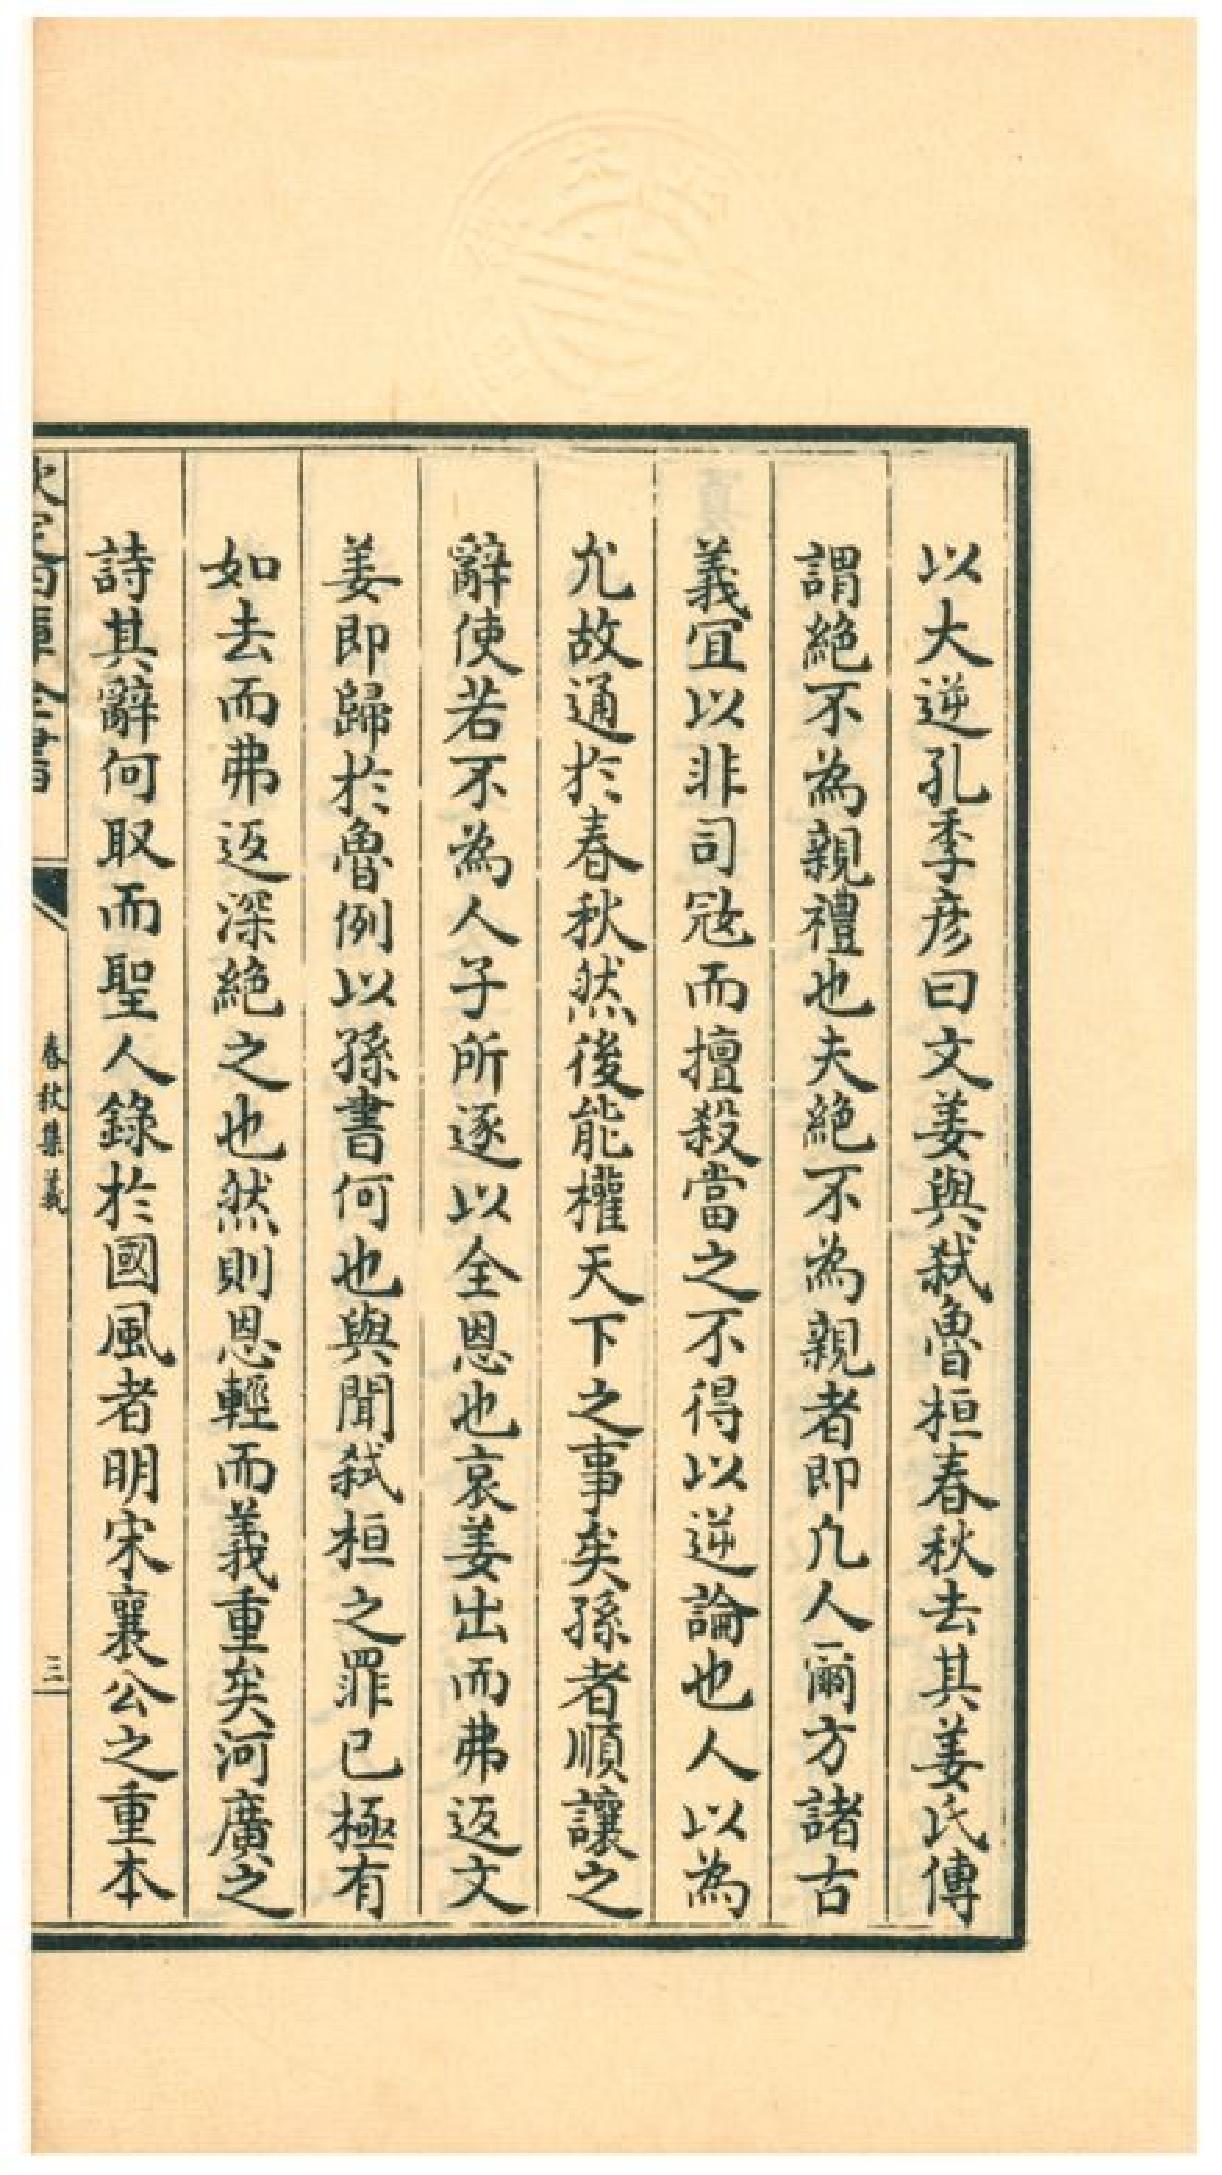 以大逆孔季彦曰文姜與弑魯桓春秋去其姜氏傳
謂絶不為親禮也夫絶不為親者即凡人爾方諸古
義宜以非司冦而擅殺當之不得以逆論也人以為
允故通於春秋然後能權天下之事矣孫者順讓之
辭使若不為人子所逐以全恩也哀姜出而弗返文
姜即歸於魯例以孫書何也與聞弑桓之罪已極有
如去而弗返深絶之也然則恩輕而義重矣河廣之
詩其辭何取而聖人錄於國風者明宋襄公之重本
欽定四庫全書
春秋集義
三